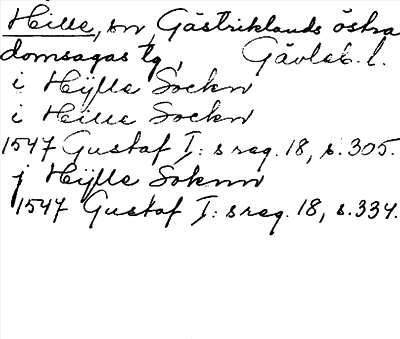 Hille, sn, Gästriklands östra
domsagas tg, Gävleb. l.
i Hÿlle Sockn
i Hille Sockn
1547 Gustaf I:s reg. 18, s. 305.
j Hÿlle Soknn
1547 Gustaf I:s reg. 18, s. 334.